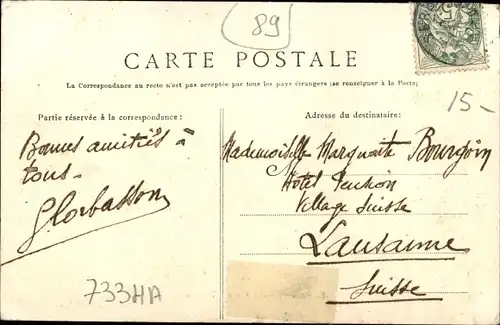 89
CARTE POSTALE
La Correspondance au recto n'est pas acceptée par tous les pays étrangers (se renseigner à la Poste)
15-
Partie réservée à la correspondance:
Bonnes amitiés à
tous.
Adresse du destinataire:
Mademoiselle Marguerite Bourgoin
Hôtel Pension
Village Suisse
Lausanne
Suisse
733HA